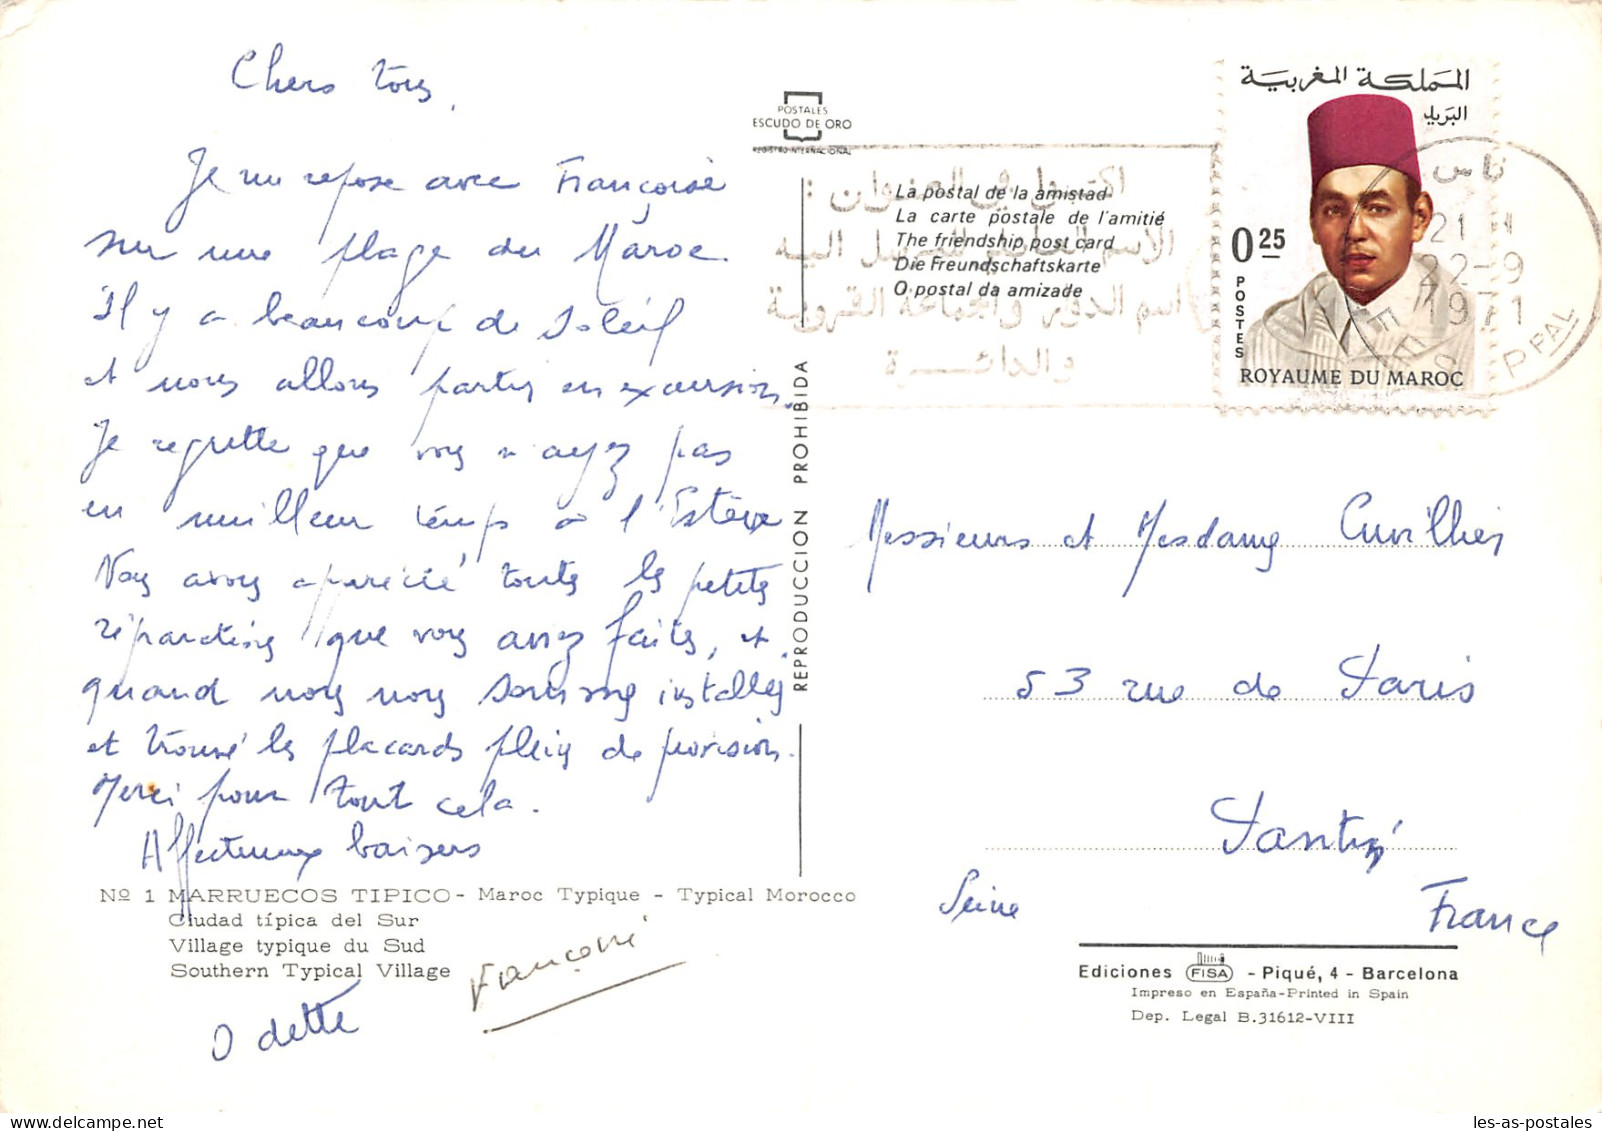 Chers tous,
Je me repose avec Françoise
sur une plage du Maroc.
Il y a beaucoup de soleil
et nous allons partir en excursion.
Je regrette que vous n'ayez pas
eu meilleur temps à l'Estève
Nous avons apprécié toutes les petites
réparations que vous avez faites, et
quand nous nous sommes installés
et trouvé les placards pleins de provision.
Merci pour tout cela.
Affectueux baisers
Odette
Françoise
Nº 1 MARRUECOS TIPICO - Maroc Typique - Typical Morocco
Ciudad típica del Sur
Village typique du Sud
Southern Typical Village
POSTALES
ESCUDO DE ORO
REGISTRO INTERNACIONAL
La postal de la amistad
La carte postale de l'amitié
The friendship post card
Die Freundschaftskarte
O postal da amizade
REPRODUCCION PROHIBIDA
: اكتبوا في العنوان
الاسم الكامل للمرسل اليه
اسم الدوار والجماعة القروية
والدائــــرة
المملكة المغربية
البريد
0.25
POSTES
ROYAUME DU MAROC
فاس
21 H
22-9
1971
FES PPAL
Messieurs et Mesdames Cuvillier
53 rue de Paris
Pantin
Seine
France
Ediciones FISA - Piqué, 4 - Barcelona
Impreso en España-Printed in Spain
Dep. Legal B.31612-VIII
les-as-postales